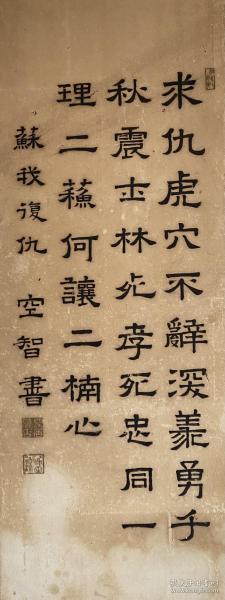 求仇虎穴不辭深義勇千
秋震士林死孝死忠同一
理二蘓何讓二楠心
蘇我復仇 空智書